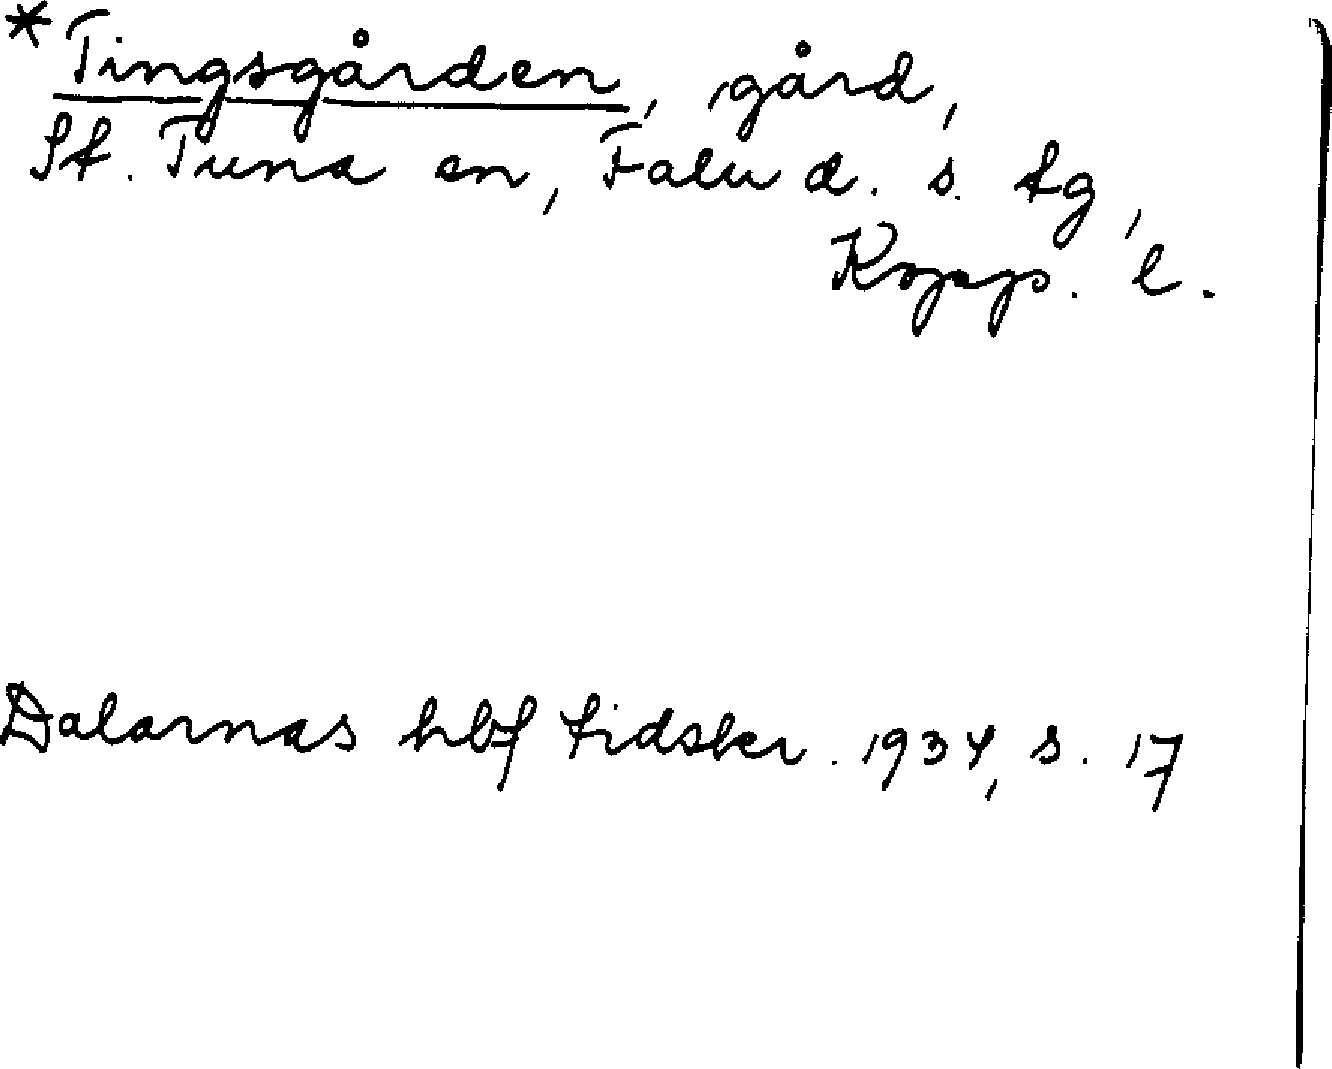 *Tingsgården, gård,
St. Tuna sn, Falu d. s. tg,
Kopp. l.
Dalarnas hbf tidskr. 1934, s. 17